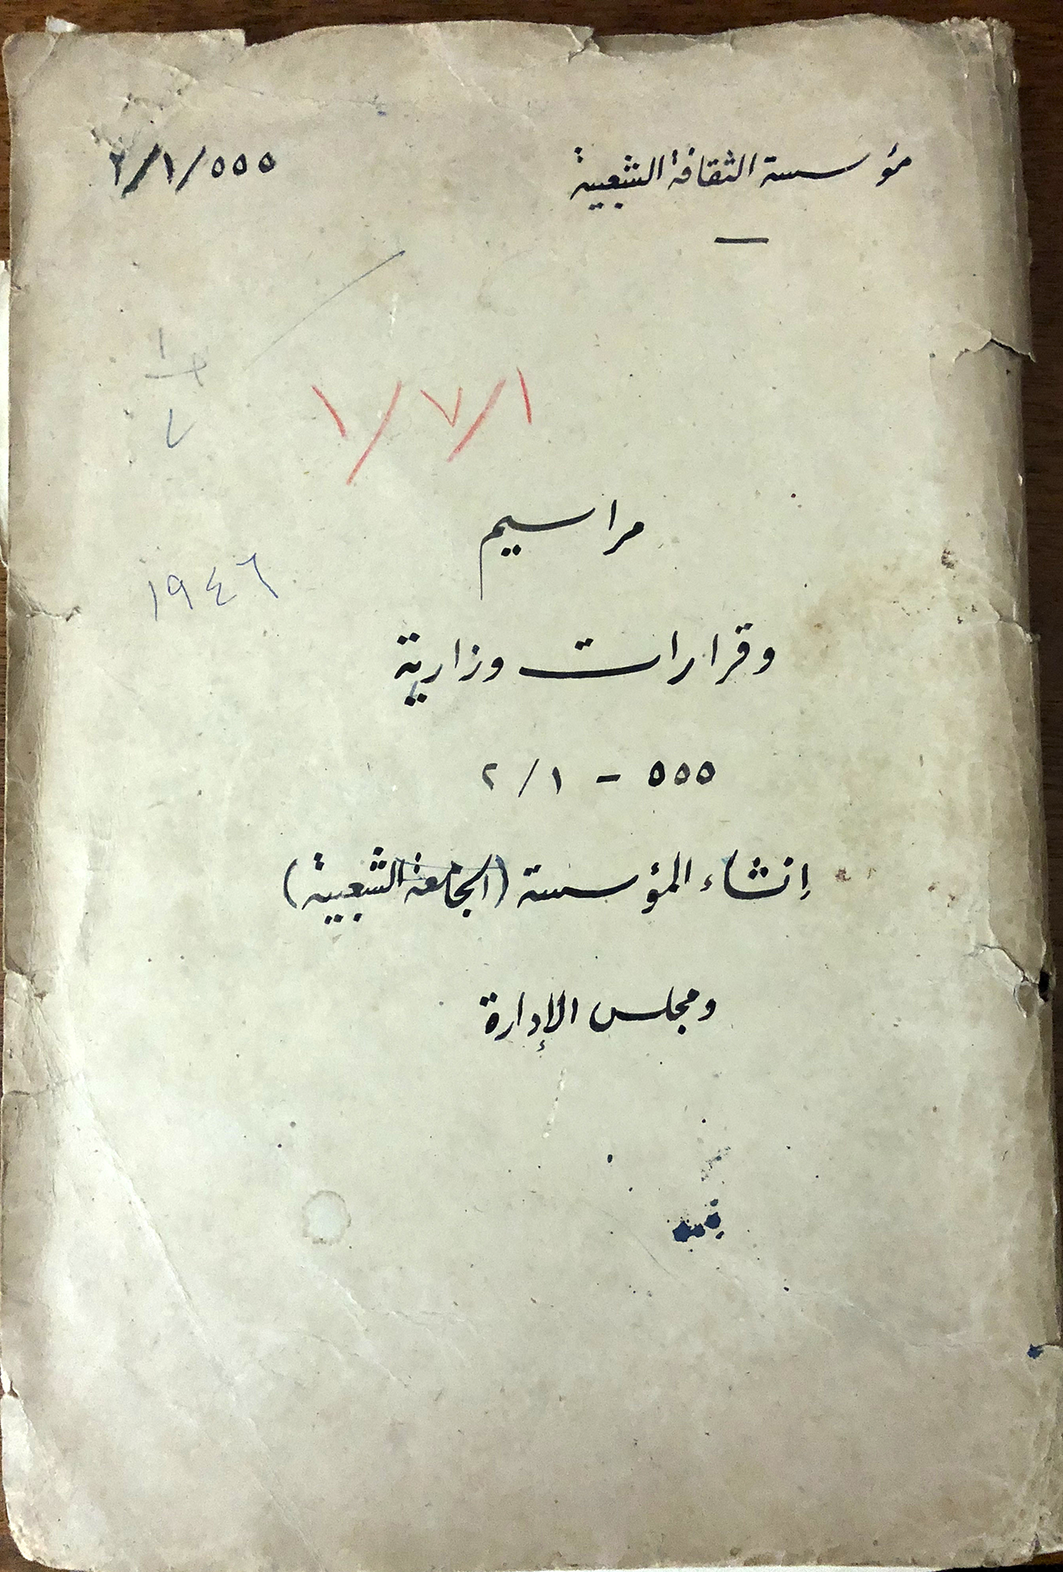 مؤسسة الثقافة الشعبية
٥٥٥/١/٢
١/٧/١
مراسيم
١٩٤٦
وقرارات وزارية
٥٥٥ - ١/٢
إنشاء المؤسسة (الجامعة الشعبية)
ومجلس الإدارة